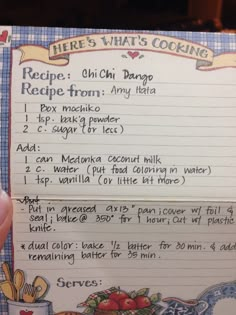 HERE'S WHAT'S COOKING
Recipe: Chi Chi Dango
Recipe from: Amy Hata
1 Box mochiko
1 tsp. bak'g powder
2 c. sugar (or less)
Add:
1 can Mendonka coconut milk
2 c. water (put food coloring in water)
1 tsp. vanilla (or little bit more)
- Put in greased 9x13" pan; cover w/ foil &
seal; bake @ 350° for 1 hour; Cut w/ plastic
knife.
* dual color: bake ½ batter for 30 min. & add
remaining batter for 35 min.
Serves: